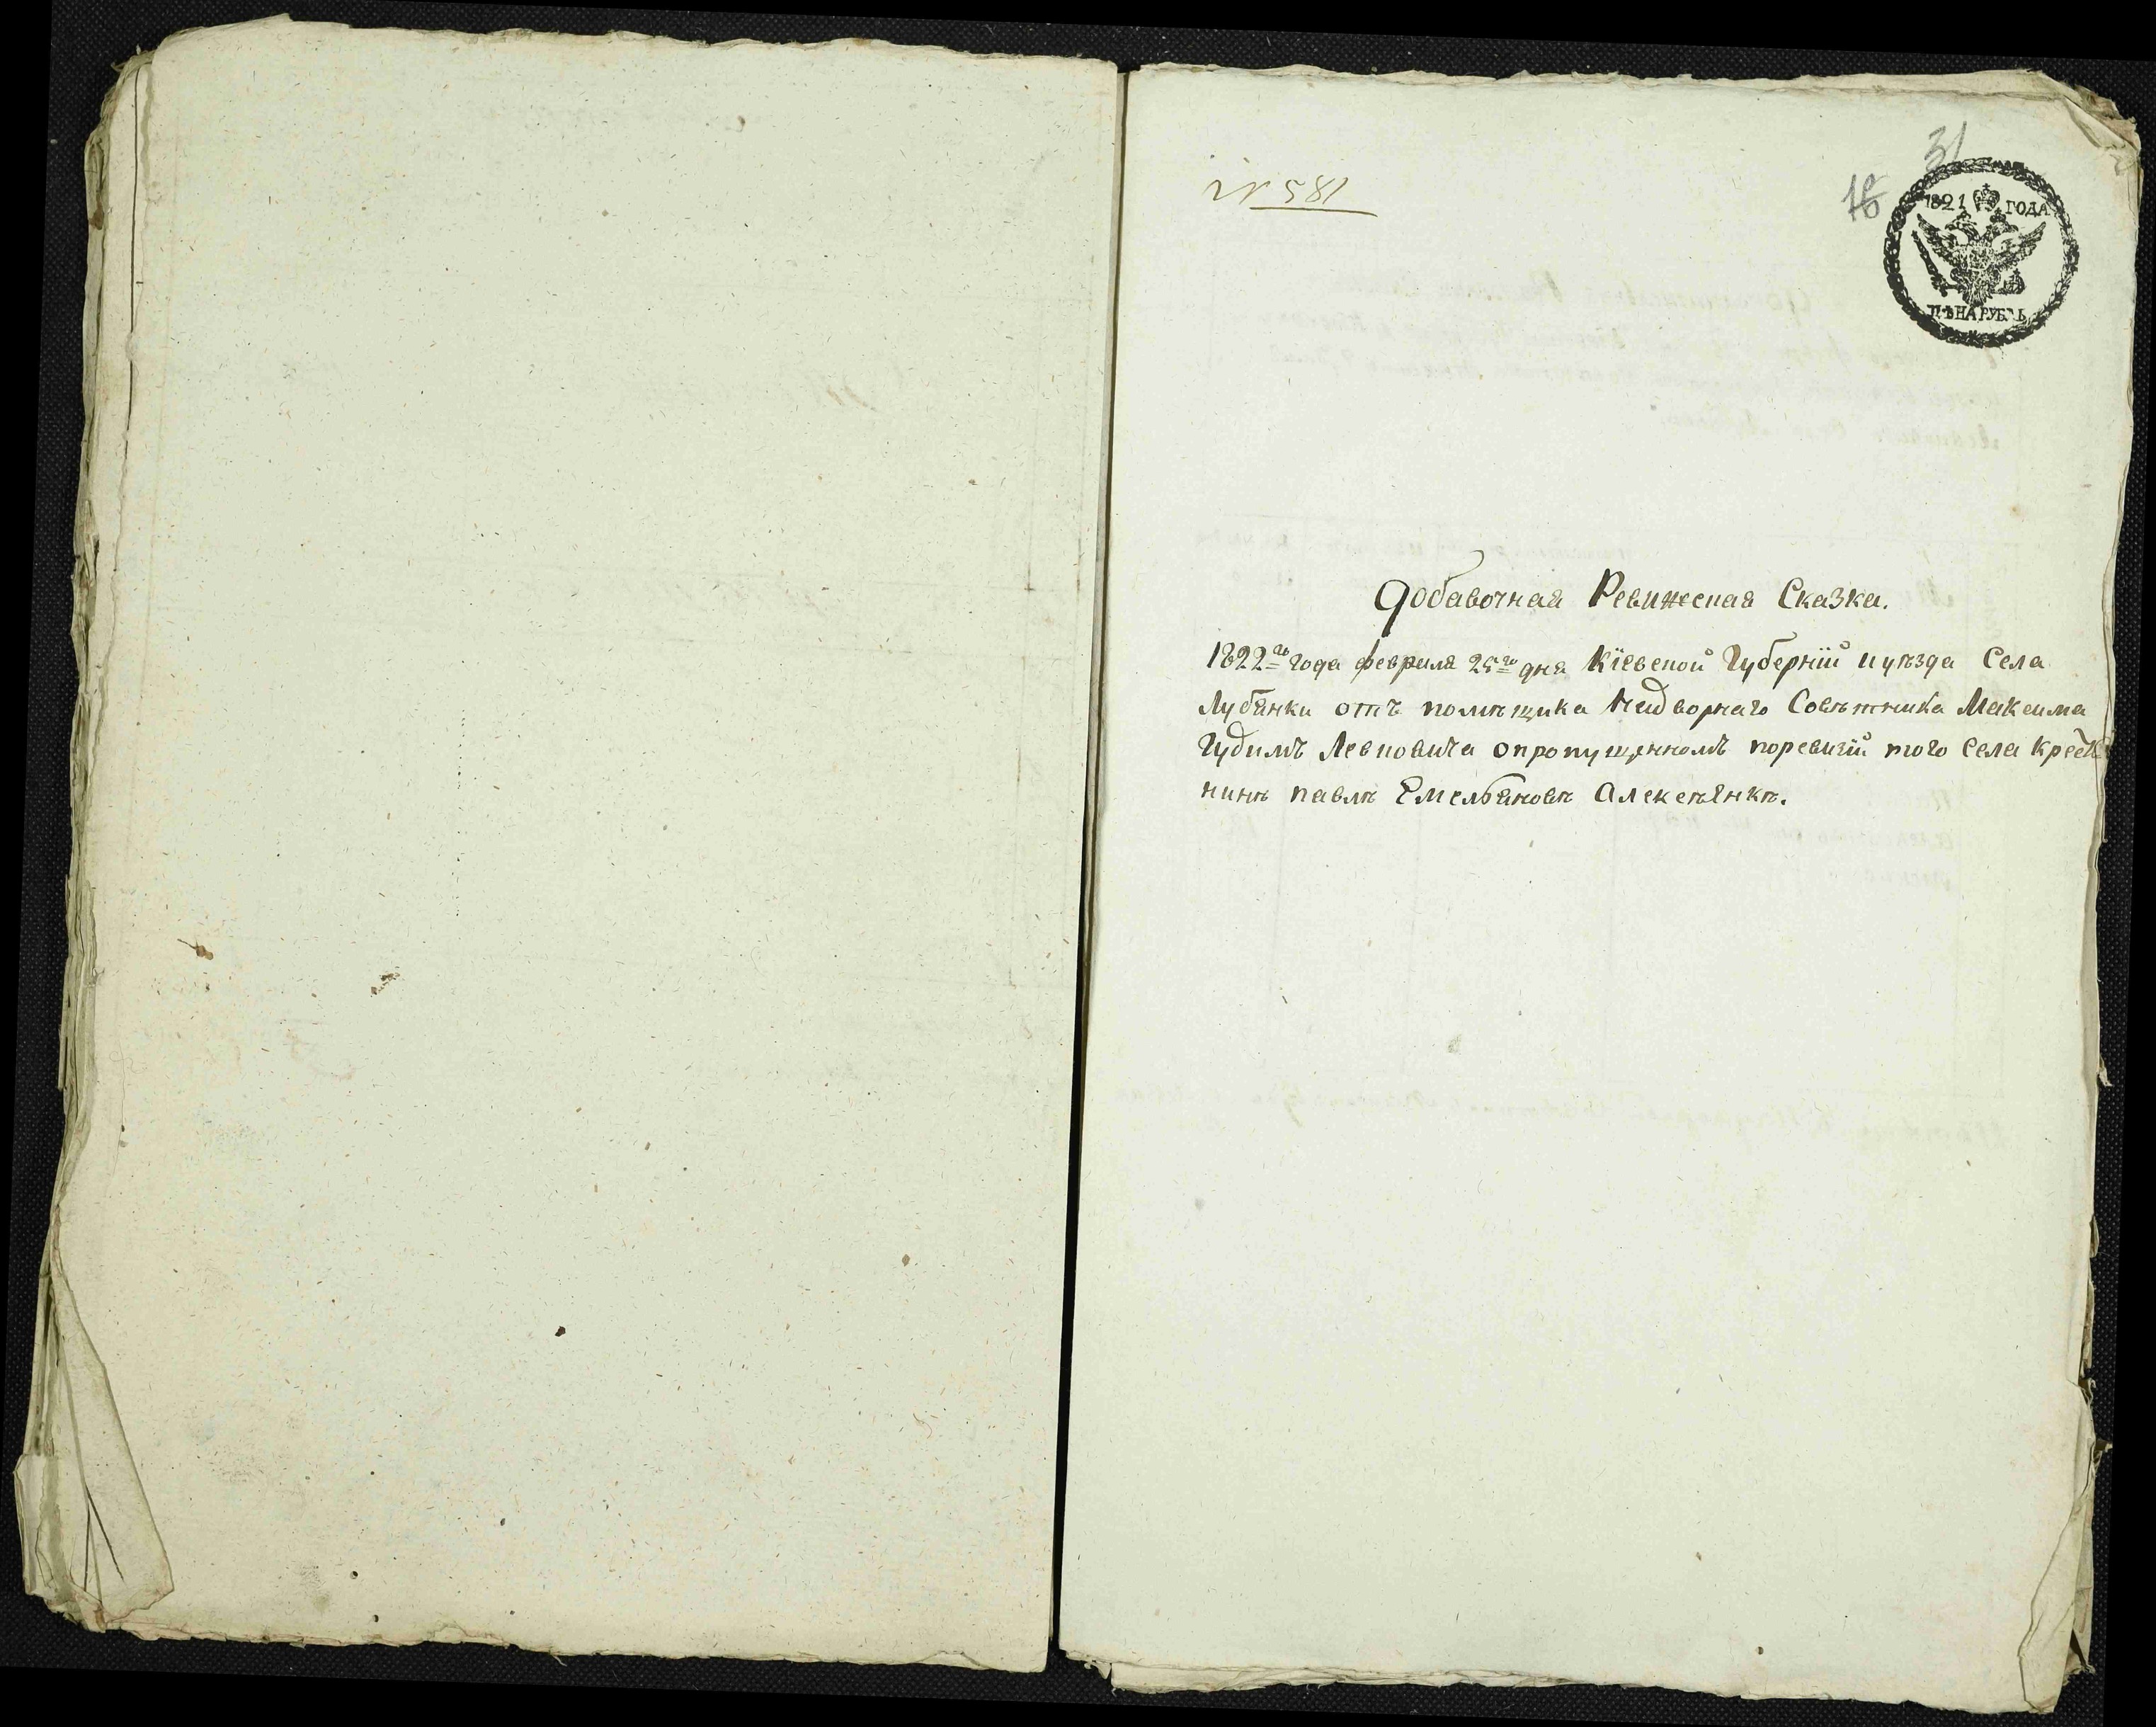 31
№ 581
1821 ГОДА
ЦѢНА РУБЛЬ
Добавочная Ревижская Сказка.
1822го года февраля 25го дня Кіевской Губерніи иуѣзда Села
Лубянки отъ помѣщика Надворнаго Совѣтника Максима
Гудимъ Левковича опропущенномъ поревизіи того села крестя
нинѣ павлѣ Емельяновѣ Алексѣенкѣ.